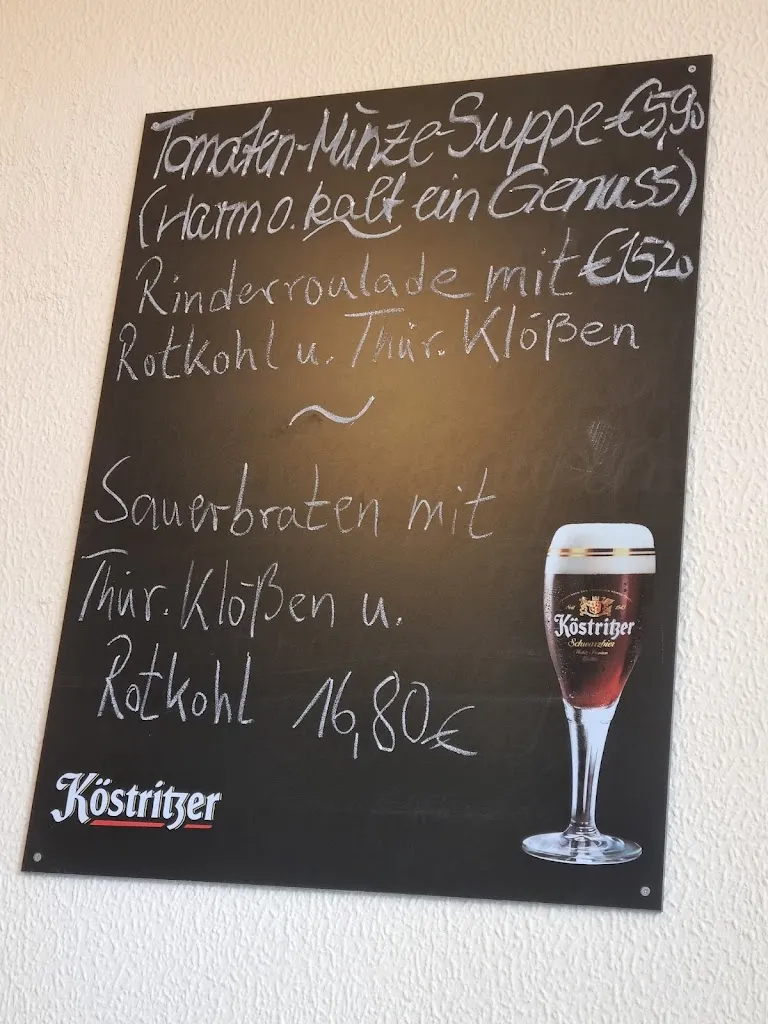 Tomaten-Minze-Suppe €5,90
(Warm o. kalt ein Genuss)
Rinderroulade mit €15,20
Rotkohl u. Thür. Klößen
~
Sauerbraten mit
Thür. Klößen u.
Rotkohl 16,80€
Köstritzer
Schwarzbier
Köstritzer